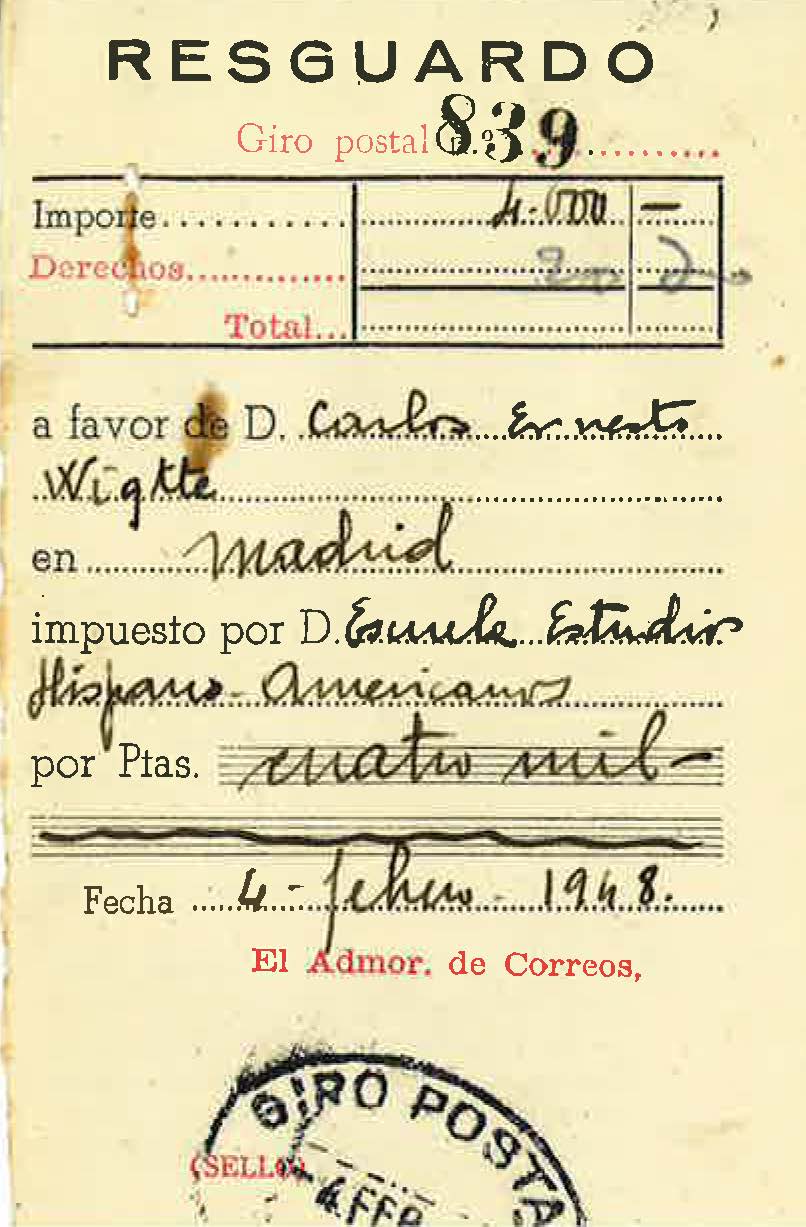 RESGUARDO
Giro postal n.º 839
Importe............ 4.000 —
Derechos............ 20 20
Total...
a favor de D. Carlos Ernesto
Wigtte
en Madrid
impuesto por D. Escuela Estudios
Hispano-Americanos
por Ptas. cuatro mil—
Fecha 4 - febrero - 1948.
El Admor. de Correos,
GIRO POSTA
(SELLO)
4 FEB